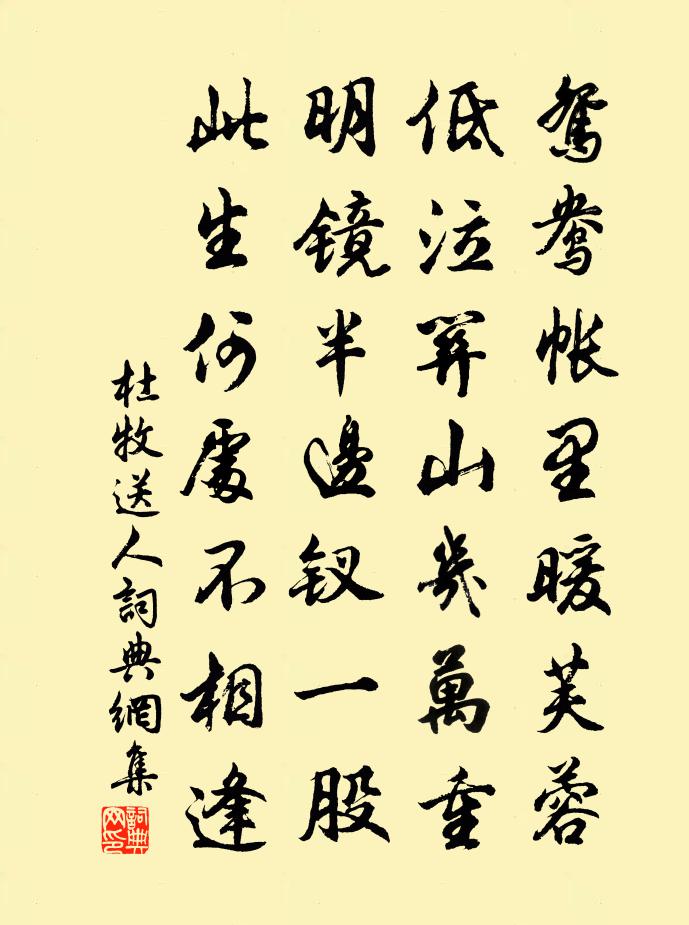 鸳鸯帐里暖芙蓉
低泣關山幾萬重
明镜半邊钗一股
此生何處不相逢
杜牧送人詞典網集
詞典網印